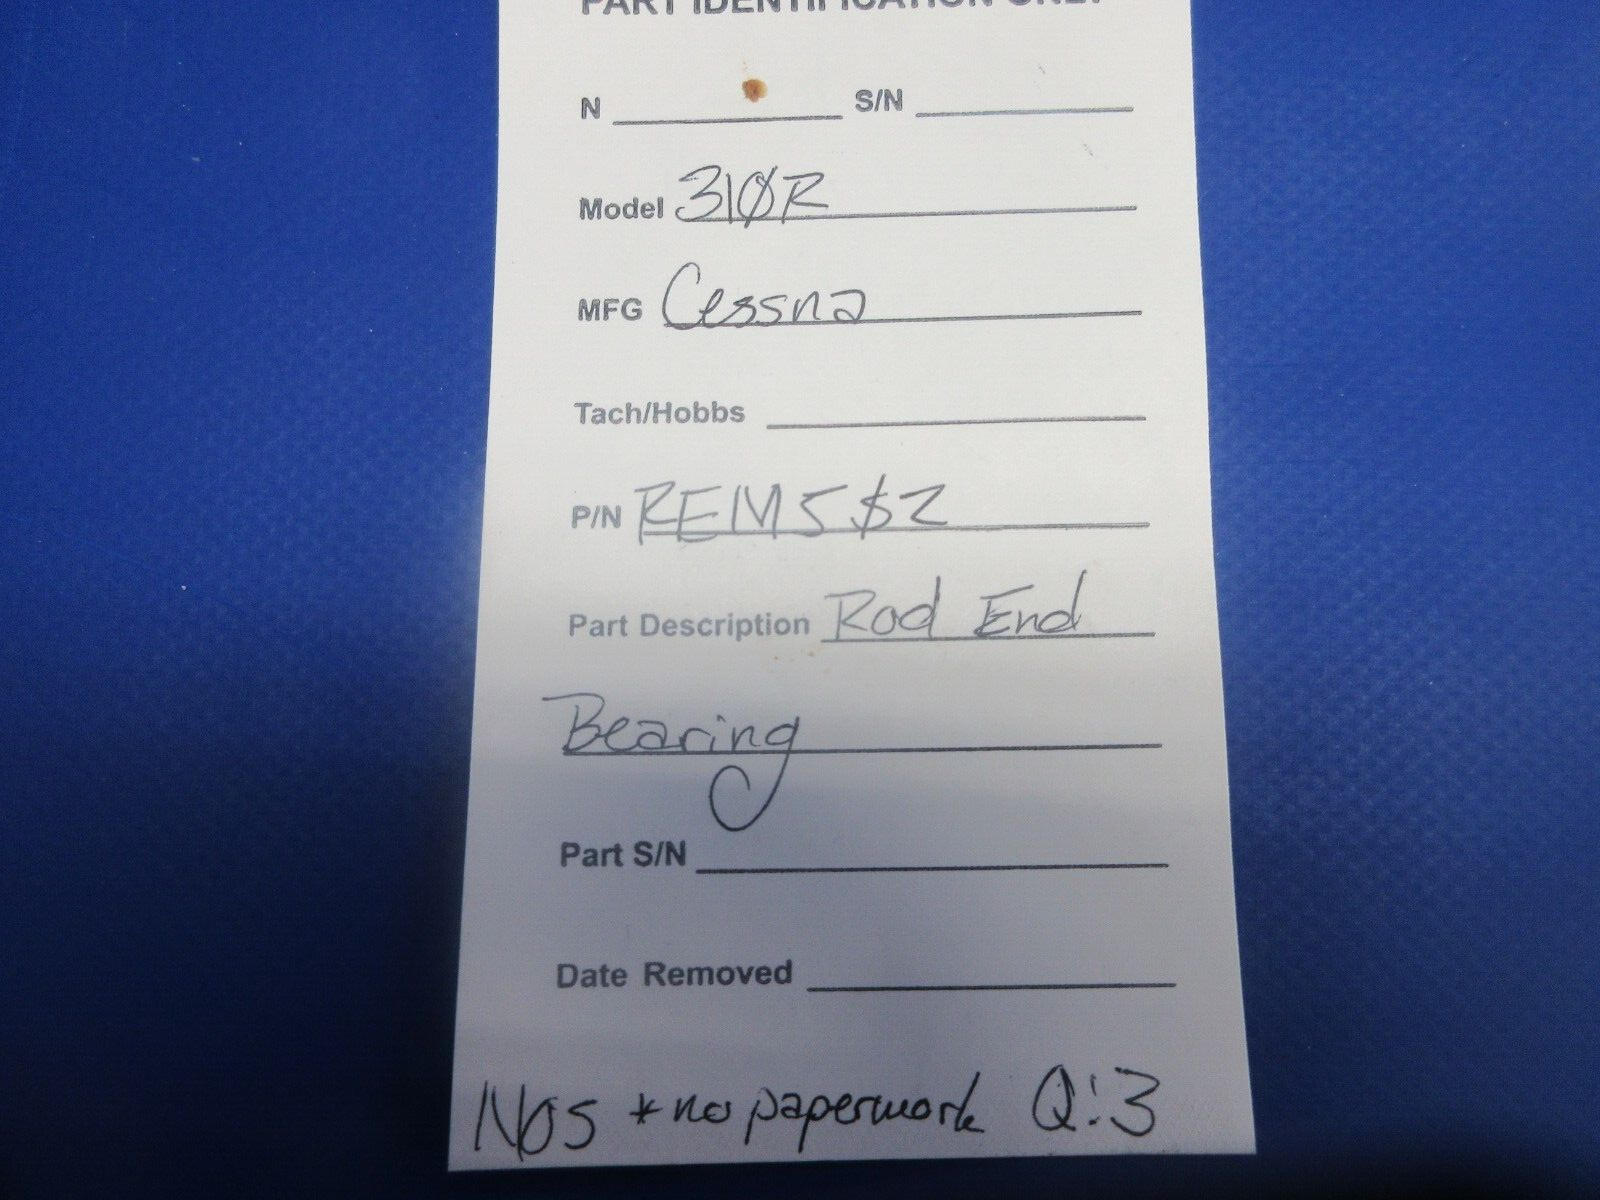 PART IDENTIFICATION ONLY
N S/N
Model 310R
MFG Cessna
Tach/Hobbs
P/N REM5$2
Part Description Rod End
Bearing
Part S/N
Date Removed
NOS *no paperwork Q:3